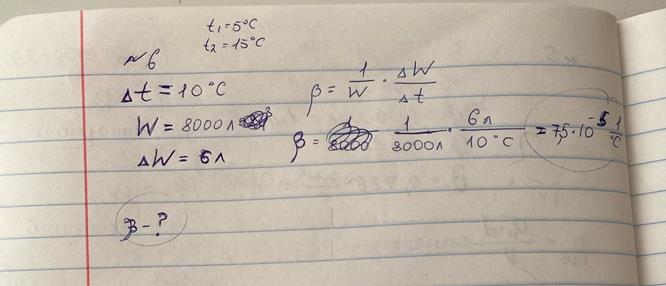 t₁ = 5°C
t₂ = 15°C
№ 6
Δt = 10°C
W = 8000 л
ΔW = 6 л
β - ?
β = 1/W · ΔW/Δt
β = 1/8000 л · 6 л/10°C = 7,5 · 10⁻⁵ 1/°C